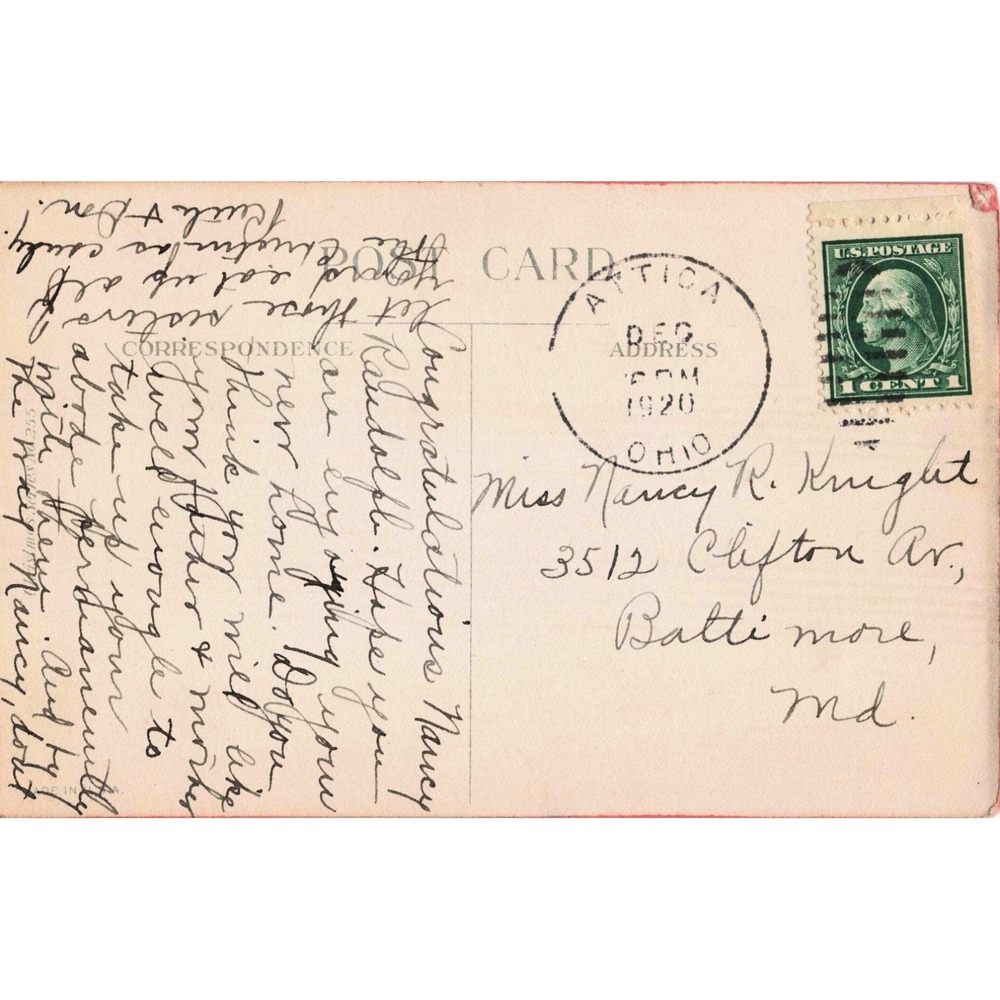 POST CARD
CORRESPONDENCE
ADDRESS
ATTICA
DEC
PM
1920
OHIO
U.S. POSTAGE
1 CENT 1
Miss Nancy R. Knight
3512 Clifton Av.,
Baltimore,
Md.
Congratulations Nancy
Randolph. Hope you
are enjoying your
new home. Do you
think you will like
your father & mother
well enough to
take up your
abode permanently
with them. And by
the way Nancy, dont
let those sisters of
yours eat up all
the Christmas candy.
Ruth & Don.
MADE IN U.S.A.